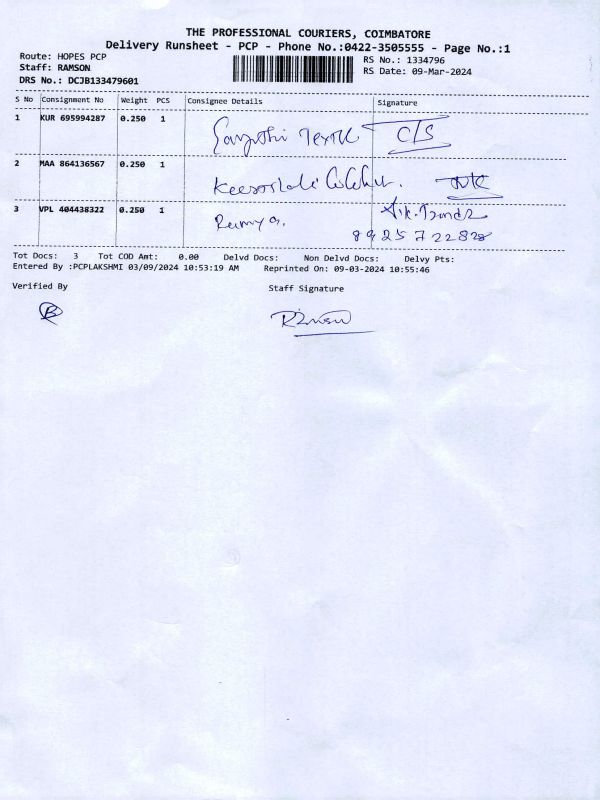 THE PROFESSIONAL COURIERS, COIMBATORE
Delivery Runsheet - PCP - Phone No.:0422-3505555 - Page No.:1
Route: HOPES PCP
Staff: RAMSON
DRS No.: DCJB133479601
RS No.: 1334796
RS Date: 09-Mar-2024
S No Consignment No Weight PCS Consignee Details Signature
1 KUR 695994287 0.250 1 C/S
2 MAA 864136567 0.250 1
3 VPL 404438322 0.250 1 Ramya
8925722828
Tot Docs: 3 Tot COD Amt: 0.00 Delvd Docs: Non Delvd Docs: Delvy Pts:
Entered By :PCPLAKSHMI 03/09/2024 10:53:19 AM Reprinted On: 09-03-2024 10:55:46
Verified By Staff Signature